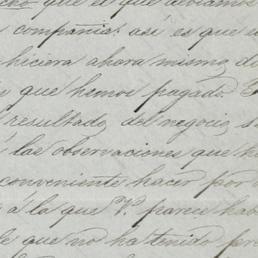 que el que debíamos
compañia: así es que
hiciera ahora mismo, di
que hemos pagado. E
resultado, del negocio, s
las observaciones que h
conveniente hacer por
a lo que V. parece hab
que no ha tenido pre